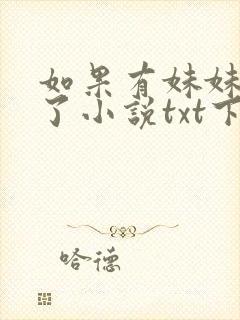 如果有妹妹
了小说txt下
哈德